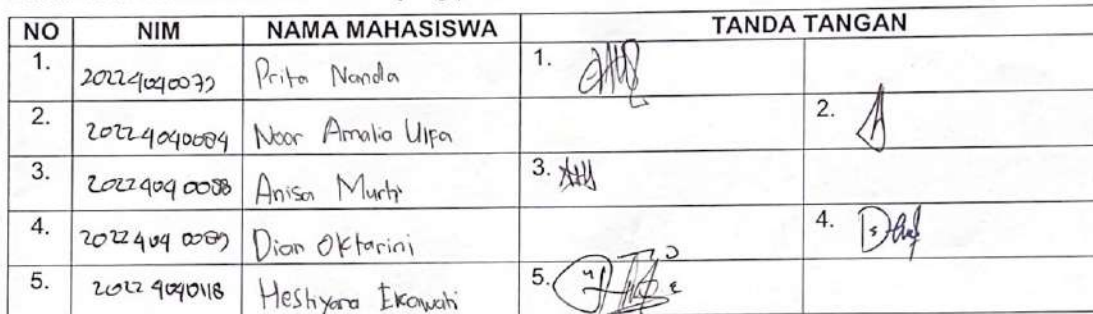 NO NIM NAMA MAHASISWA TANDA TANGAN
1. 20224040079 Prita Nanda 1.
2. 20224040084 Noor Amalia Ulfa 2.
3. 20224040088 Anisa Murti 3.
4. 20224040089 Dian Oktarini 4.
5. 20224040118 Heshyana Ekawati 5.